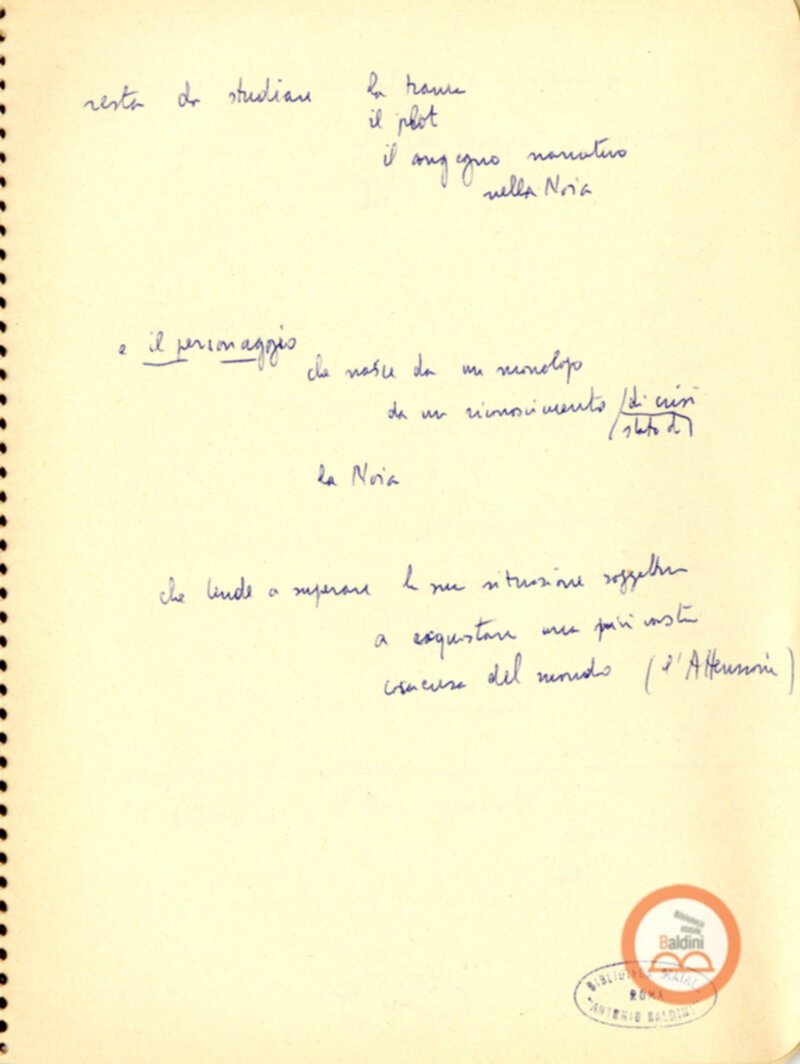 resta da studiare la trama
il plot
il congegno narrativo
nella Noia
e il personaggio
che nasce da un monologo
da un riconoscimento di crisi
stato di
la Noia
che tende a superare la sua situazione soggettiva
a acquistare una più vasta
coscienza del mondo (l'Attenzione)
Biblioteca
statale
Baldini
BIBLIOTECA STATALE
ROMA
"ANTONIO BALDINI"